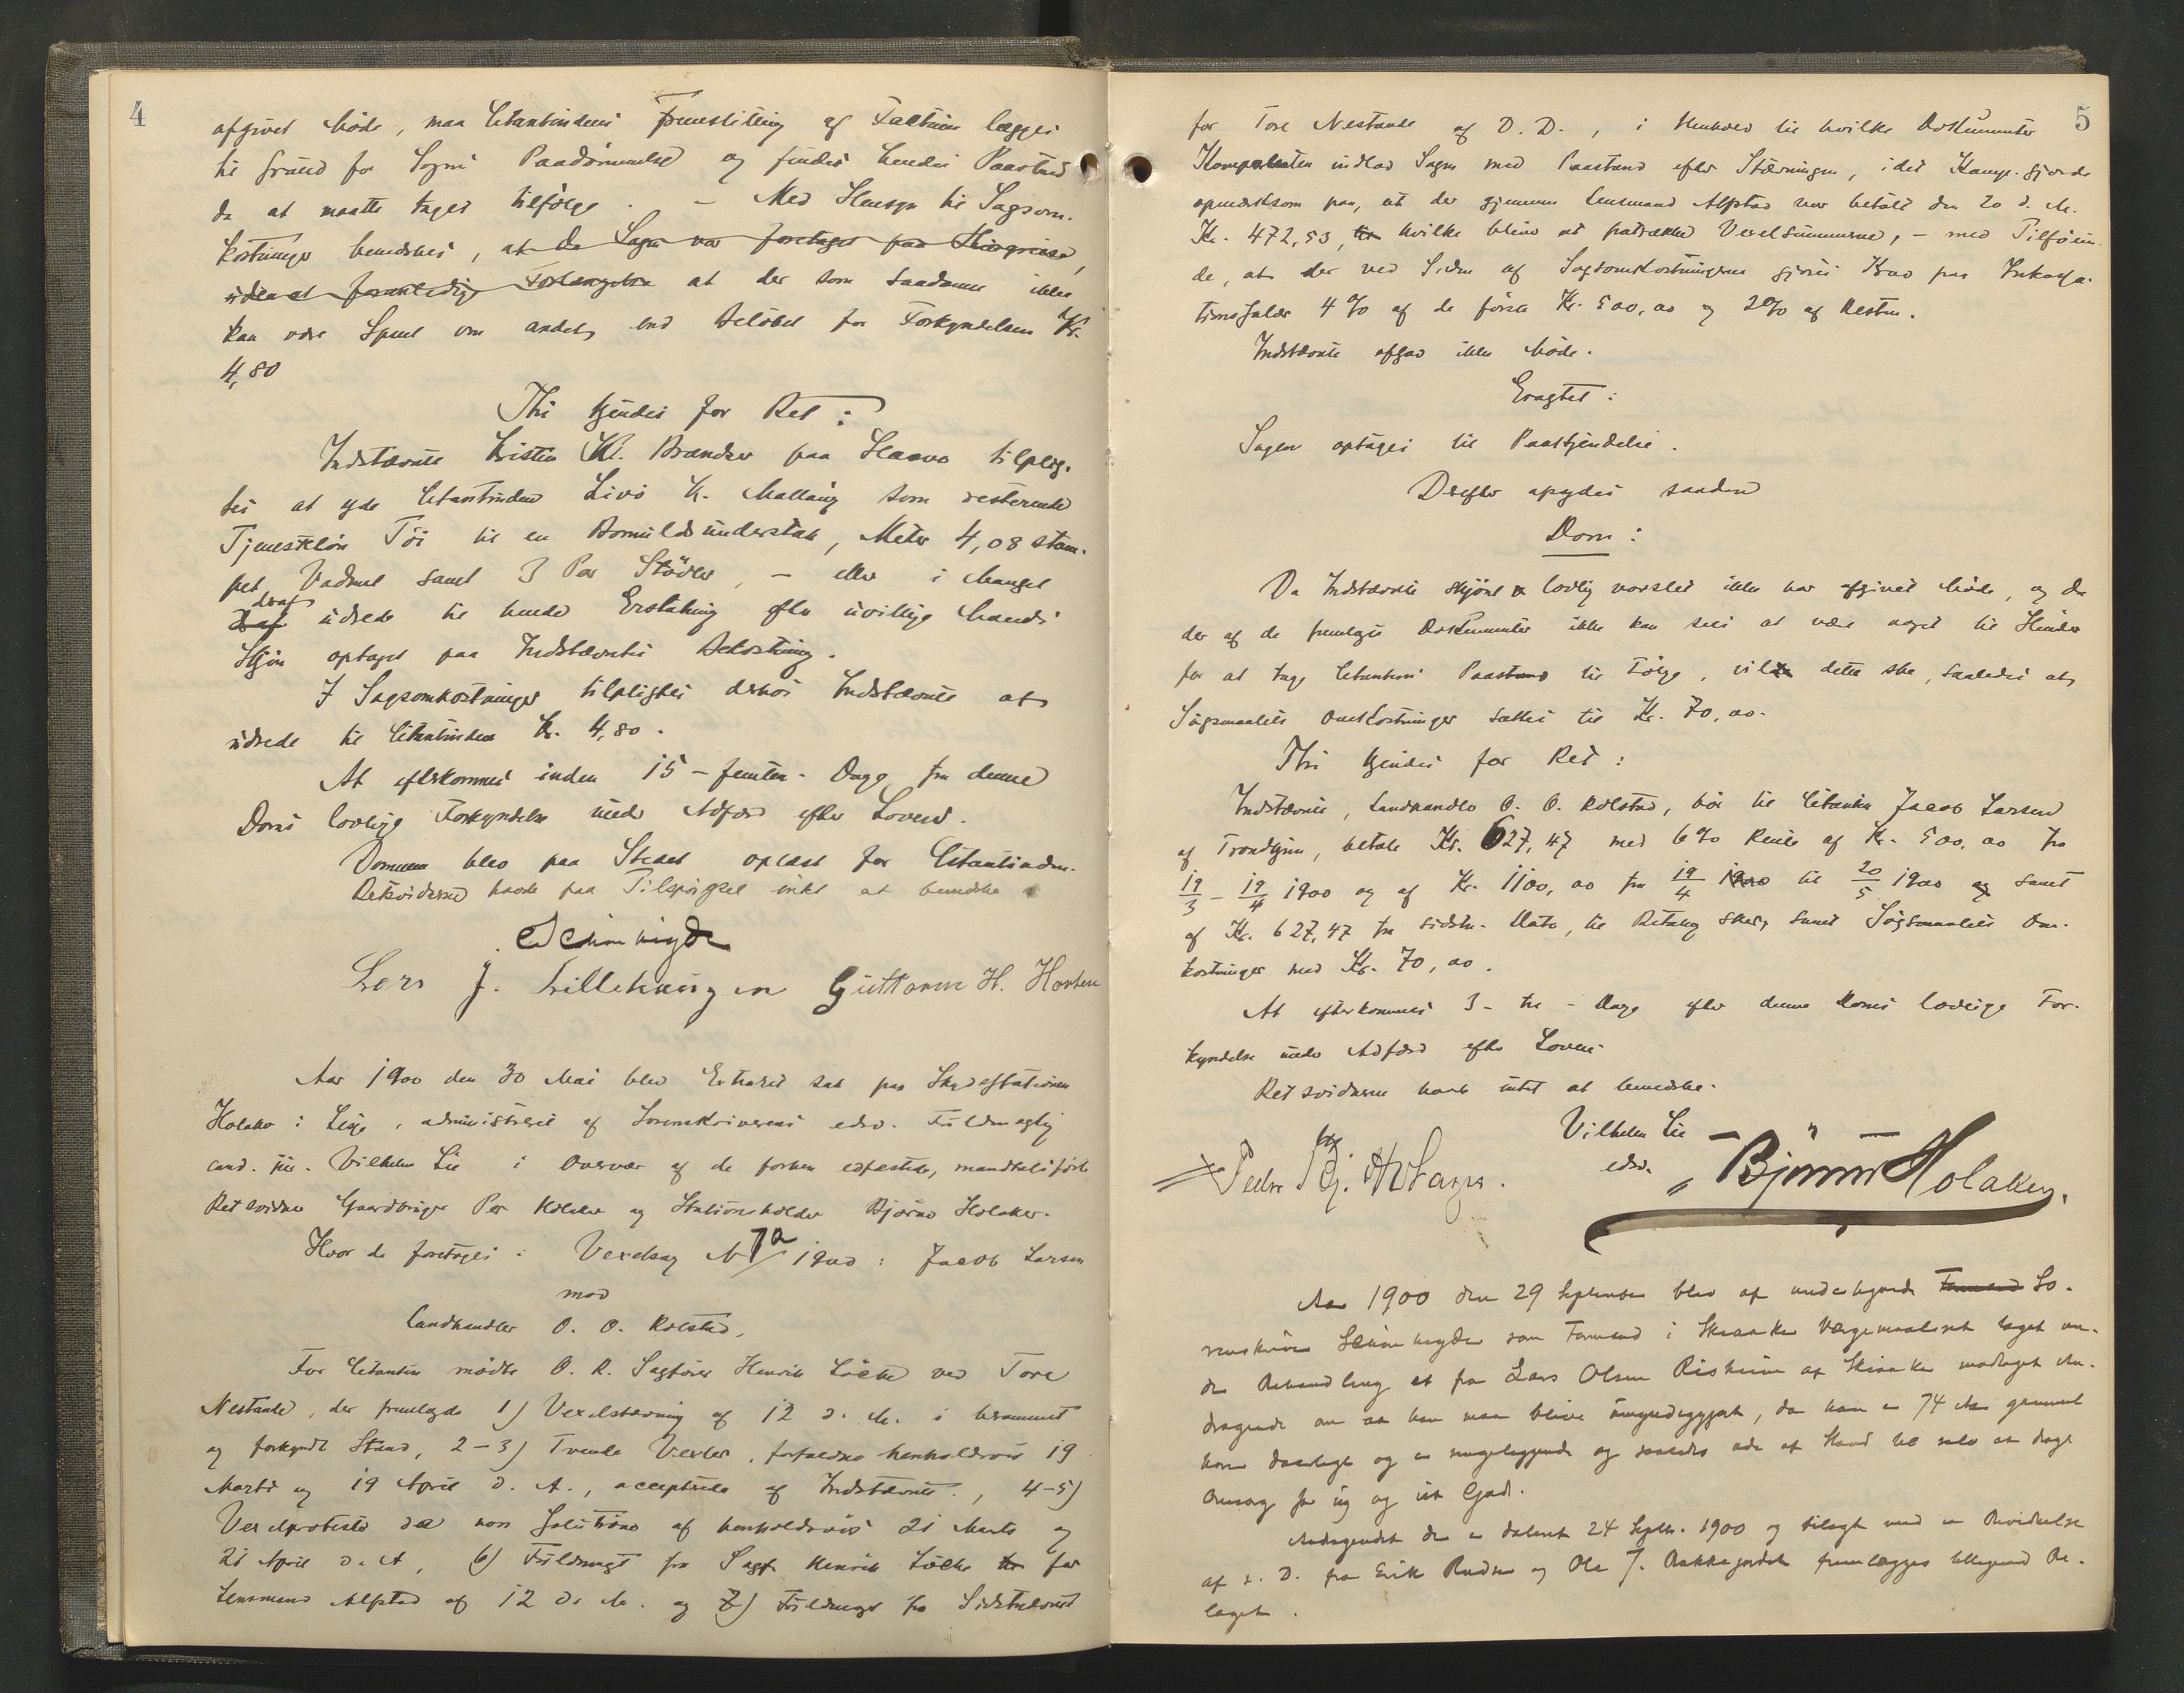 4
afgivet Møde, maa Citantindens Fremstilling af Factum lægges
til Grund for Sagens Paadømmelse og findes hendes Paastand
da at maatte tages tilfølge. – Med Hensyn til Sagsom-
kostninger bemerkes, at da Sagen var foretaget paa
uden at foranledige at der som saadanne ikke
kan være Spmaal om andet end Beløbet for Forkyndelsen Kr.
4,80
Thi kjendes for Ret:
Indstævnte Kristen Kr. Brændsø paa Skaavo tilplig-
tes at yde Citantinden Livø K. Mallaug som resterende
Tjenestløn Tøi til en Bomuldsunderstak, Meter 4,08 stam-
pet Vadmel samt 3 Par Støvler, – eller i Mangel
deraf udrede til hende Erstatning efter uvillige Mænds
Skjøn optaget paa Indstævntes Bekostning.
I Sagsomkostninger tilpligtes derhos Indstævnte at
udrede til Citantinden Kr. 4,80.
At efterkommes inden 15 – femten – Dage fra denne
Doms lovlige Forkyndelse under Adfærd efter Loven.
Dommen blev paa Stedet oplæst for Citantinden.
Retsvidnerne havde paa Tilspørgsel intet at bemerke
Lars J. Lillehaugen Guttorm H. Horten
Aar 1900 den 30 Mai blev Extraret sat paa Skydsstationen
Holaker i Lesje, administreret af Sorenskriverens edsv. Fuldmægtig
cand. jur. Vilhelm Lie i Overvær af de forhen edfæstede, mandtalsførte
Retsvidner Gaardbruger Per Holaker og Stationsholder Bjørner Holaker.
Hvor da foretoges: Vexelsag N 7a/1900: Jacob Larsen
mod
Landhandler O. O. Kolstad,
For Citanten mødte O. R. Sagfører Henrik Løcke ved Tore
Nestande, der fremlagde 1) Vexelstævning af 12 d. M. i berammet
og forkyndt Stand, 2–3) Tvende Vexler, forfaldne henholdsvis 19
Marts og 19 April d. A., accepterede af Indstævnte, 4–5)
Vexelprotester de non solutione af henholdsvis 21 Marts og
21 April d. A, 6) Fuldmagt fra Sagf. Henrik Løcke for
Lensmand Alfstad af 12 d. M. og 7) Fuldmagt fra Sidstnævnte
5
for Tore Nestande af D. D., i Henhold til hvilke Dokumenter
Komparenten indlod Sagen med Paastand efter Stævningen, idet Komp. gjorde
opmerksom paa, at der gjennem Lensmand Alfstad var betalt den 20 d. M.
Kr. 472,53, hvilke bliver at fratrække Vexelsummerne, – med Tilføien-
de, at der ved Siden af Sagsomkostningerne gjøres Krav paa Inkassa-
tionssalær 4 % af de første Kr. 500,00 og 2% af Resten.
Indstævnte afgav ikke Møde.
Eragtet:
Sagen optages til Paakjendelse.
Derefter afsagdes saadan
Dom:
Da Indstævnte skjønt lovlig varslet ikke har afgivet Møde, og da
der af de fremlagte Dokumenter ikke kan sees at være noget til Hinder
for at tage Citantens Paastand til Følge, vil dette ske, saaledes at
Søgsmaalets Omkostninger sættes til Kr. 70,00.
Thi kjendes for Ret:
Indstævnte, Landhandler O. O. Kolstad, bør til Citanten Jacob Larsen
af Trondhjem, betale Kr. 627,47 med 6% Rente af Kr. 500,00 fra
19/3 – 19/4 1900 og af Kr. 1100,00 fra 19/4 1900 til 20/5 1900 samt
af Kr. 627,47 fra sidstn. Dato, til Betaling sker, samt Søgsmaalets Om-
kostninger med Kr. 70,00.
At efterkommes 3 – tre – Dage efter denne Doms lovlige For-
kyndelse under Adfærd efter Loven.
Retsvidnerne havde intet at bemerke.
Vilhelm Lie
edsv.
Peder Bj. Holager. Bjørner Holaker.
Aar 1900 den 29 September blev af undertegnede Formand So-
renskriver som Formand i Skiaaker Værgemaalsret taget un-
der Behandling et fra Lars Olsen Risheim af Skiaaker modtaget An-
dragende om at han maa blive umyndiggjort, da han er 74 Aar gammel
hører daarligt og er sengeliggende og saaledes ude af Stand til selv at drage
Omsorg for sig og sit Gods.
Andragendet der er dateret 24 Septbr. 1900 og bilagt med en Bevidnelse
af s. D. fra Erik Rudn og Ole J. Bakkejordet fremlægges tilligemed Bi-
laget.